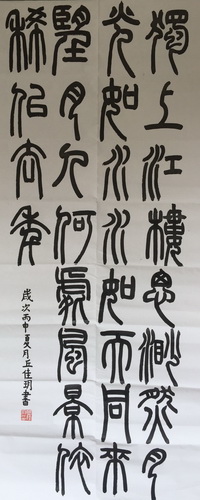 獨上江樓思渺然月
光如水水如天同來
望月人何處風景依
稀似去年
歲次丙申夏月丘佳玥書